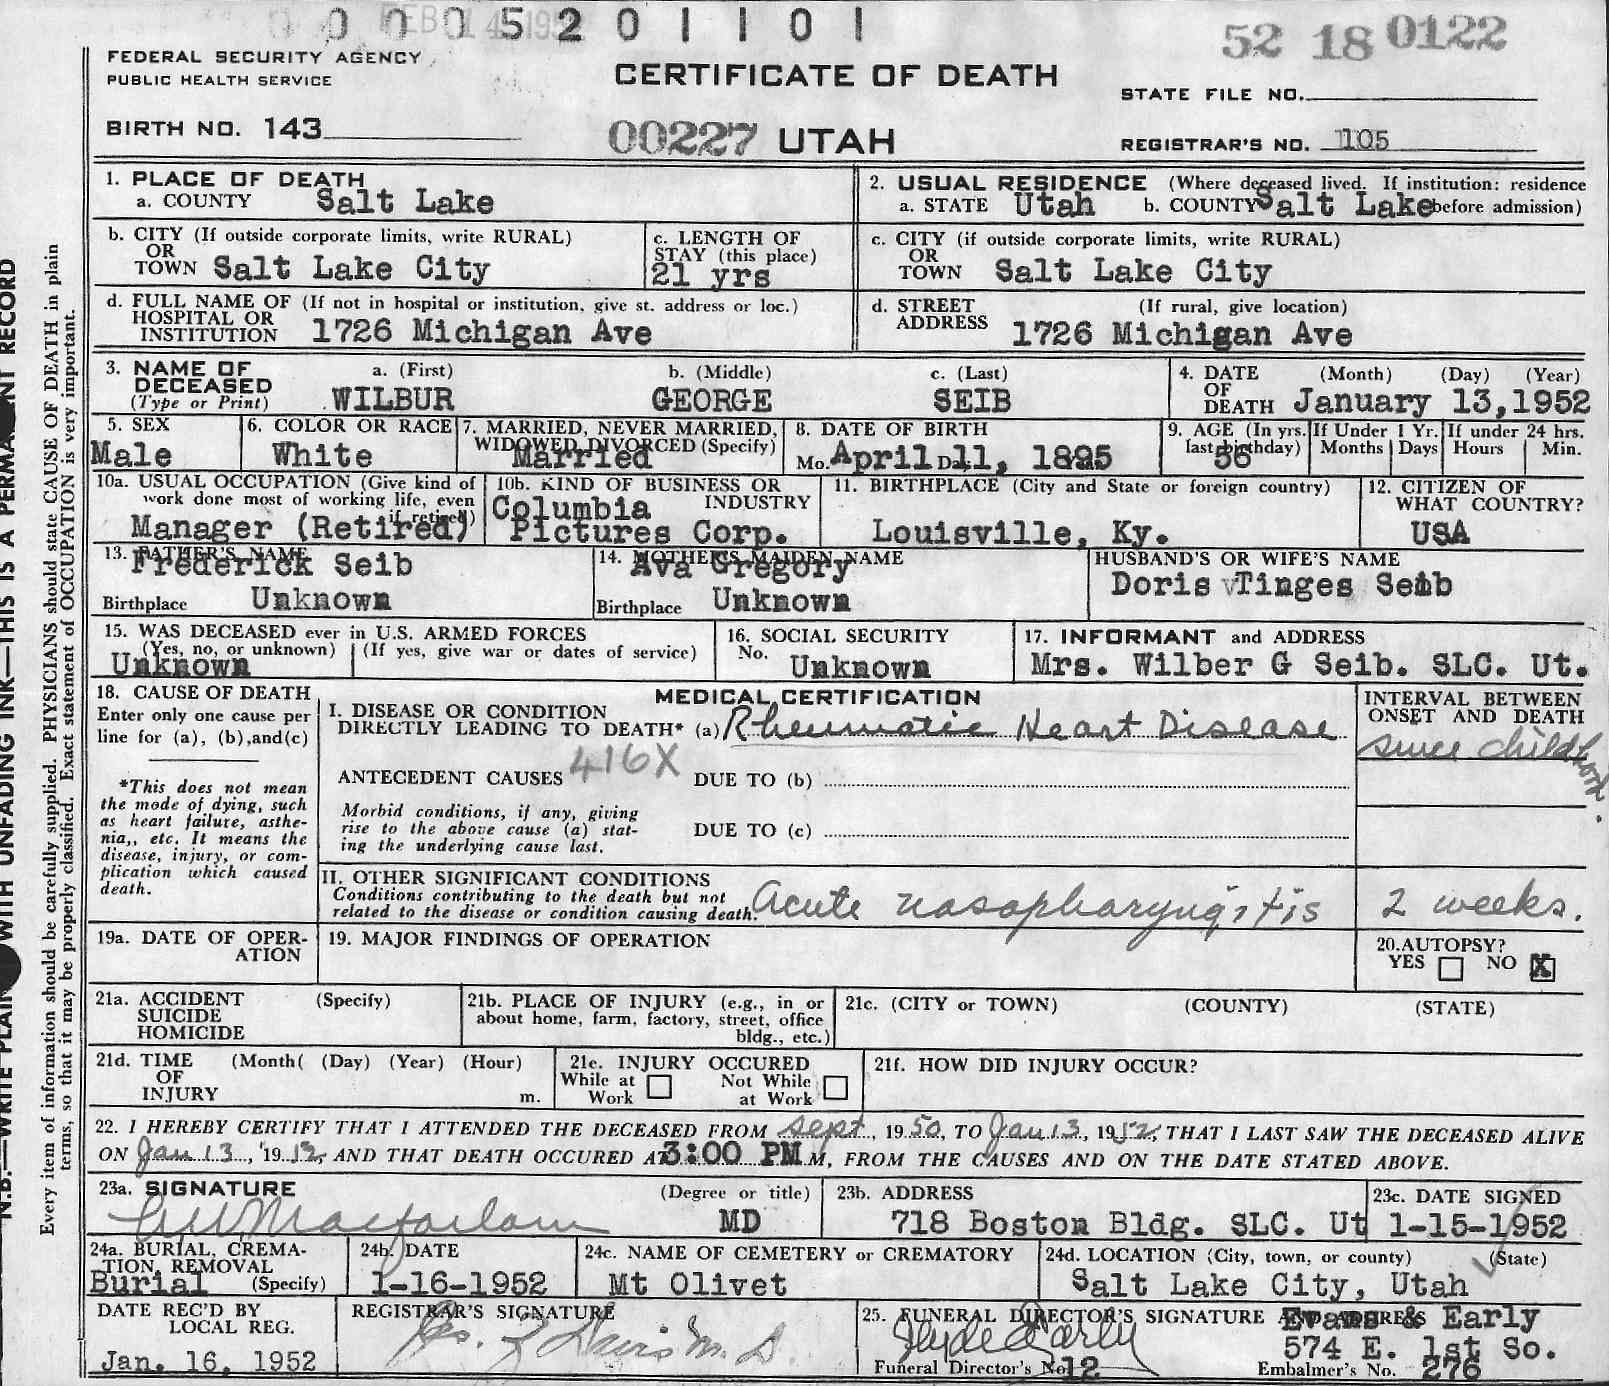 0 0 0 5 2 0 1 1 0 1
FEB 14 195
52 18 0122
FEDERAL SECURITY AGENCY
PUBLIC HEALTH SERVICE
CERTIFICATE OF DEATH
STATE FILE NO.
BIRTH NO. 143
00227 UTAH
REGISTRAR'S NO. 105
1. PLACE OF DEATH
a. COUNTY Salt Lake
2. USUAL RESIDENCE (Where deceased lived. If institution: residence
a. STATE Utah b. COUNTY Salt Lake before admission)
b. CITY (If outside corporate limits, write RURAL)
OR
TOWN Salt Lake City
c. LENGTH OF
STAY (this place)
21 yrs
c. CITY (if outside corporate limits, write RURAL)
OR
TOWN Salt Lake City
d. FULL NAME OF (If not in hospital or institution, give st. address or loc.)
HOSPITAL OR
INSTITUTION 1726 Michigan Ave
d. STREET (If rural, give location)
ADDRESS 1726 Michigan Ave
3. NAME OF a. (First) b. (Middle) c. (Last)
DECEASED
(Type or Print) WILBUR GEORGE SEIB
4. DATE (Month) (Day) (Year)
OF
DEATH January 13,1952
5. SEX
Male
6. COLOR OR RACE
White
7. MARRIED, NEVER MARRIED,
WIDOWED, DIVORCED (Specify)
Married
8. DATE OF BIRTH
Mo. April Da. 11, 1895
9. AGE (In yrs. last birthday)
56
If Under 1 Yr.
Months Days
If under 24 hrs.
Hours Min.
10a. USUAL OCCUPATION (Give kind of
work done most of working life, even
if retired)
Manager (Retired)
10b. KIND OF BUSINESS OR
INDUSTRY
Columbia
Pictures Corp.
11. BIRTHPLACE (City and State or foreign country)
Louisville, Ky.
12. CITIZEN OF
WHAT COUNTRY?
USA
13. FATHER'S NAME
Frederick Seib
Birthplace Unknown
14. MOTHER'S MAIDEN NAME
Ava Gregory
Birthplace Unknown
HUSBAND'S OR WIFE'S NAME
Doris Tinges Seib
15. WAS DECEASED ever in U.S. ARMED FORCES
(Yes, no, or unknown) (If yes, give war or dates of service)
Unknown
16. SOCIAL SECURITY
No. Unknown
17. INFORMANT and ADDRESS
Mrs. Wilber G Seib. SLC. Ut.
18. CAUSE OF DEATH
Enter only one cause per
line for (a), (b),and(c)
*This does not mean
the mode of dying, such
as heart failure, asthe-
nia,, etc. It means the
disease, injury, or com-
plication which caused
death.
MEDICAL CERTIFICATION
I. DISEASE OR CONDITION
DIRECTLY LEADING TO DEATH* (a) Rheumatic Heart Disease
INTERVAL BETWEEN
ONSET AND DEATH
since childhood.
ANTECEDENT CAUSES 416X DUE TO (b)
Morbid conditions, if any, giving
rise to the above cause (a) stat-
ing the underlying cause last.
DUE TO (c)
II. OTHER SIGNIFICANT CONDITIONS
Conditions contributing to the death but not
related to the disease or condition causing death.
Acute nasopharyngitis 2 weeks.
19a. DATE OF OPER-
ATION
19. MAJOR FINDINGS OF OPERATION
20.AUTOPSY?
YES NO X
21a. ACCIDENT (Specify)
SUICIDE
HOMICIDE
21b. PLACE OF INJURY (e.g., in or
about home, farm, factory, street, office
bldg., etc.)
21c. (CITY or TOWN) (COUNTY) (STATE)
21d. TIME (Month( (Day) (Year) (Hour)
OF
INJURY m.
21e. INJURY OCCURED
While at Work Not While at Work
21f. HOW DID INJURY OCCUR?
22. I HEREBY CERTIFY THAT I ATTENDED THE DECEASED FROM Sept, 1950, TO Jan 13, 1952, THAT I LAST SAW THE DECEASED ALIVE
ON Jan 13, 1952, AND THAT DEATH OCCURED AT 3:00 PM M, FROM THE CAUSES AND ON THE DATE STATED ABOVE.
23a. SIGNATURE (Degree or title)
Macfarlane MD
23b. ADDRESS
718 Boston Bldg. SLC. Ut
23c. DATE SIGNED
1-15-1952
24a. BURIAL, CREMA-
TION, REMOVAL
Burial (Specify)
24b. DATE
1-16-1952
24c. NAME OF CEMETERY or CREMATORY
Mt Olivet
24d. LOCATION (City, town, or county) (State)
Salt Lake City, Utah
DATE REC'D BY
LOCAL REG.
Jan. 16, 1952
REGISTRAR'S SIGNATURE
Davis M.D.
25. FUNERAL DIRECTOR'S SIGNATURE AND ADDRESS
Evans & Early
574 E. 1st So.
Funeral Director's No. 12
Embalmer's No. 276
N.B.—WRITE PLAINLY WITH UNFADING INK—THIS IS A PERMANENT RECORD
Every item of information should be carefully supplied. PHYSICIANS should state CAUSE OF DEATH in plain
terms, so that it may be properly classified. Exact statement of OCCUPATION is very important.